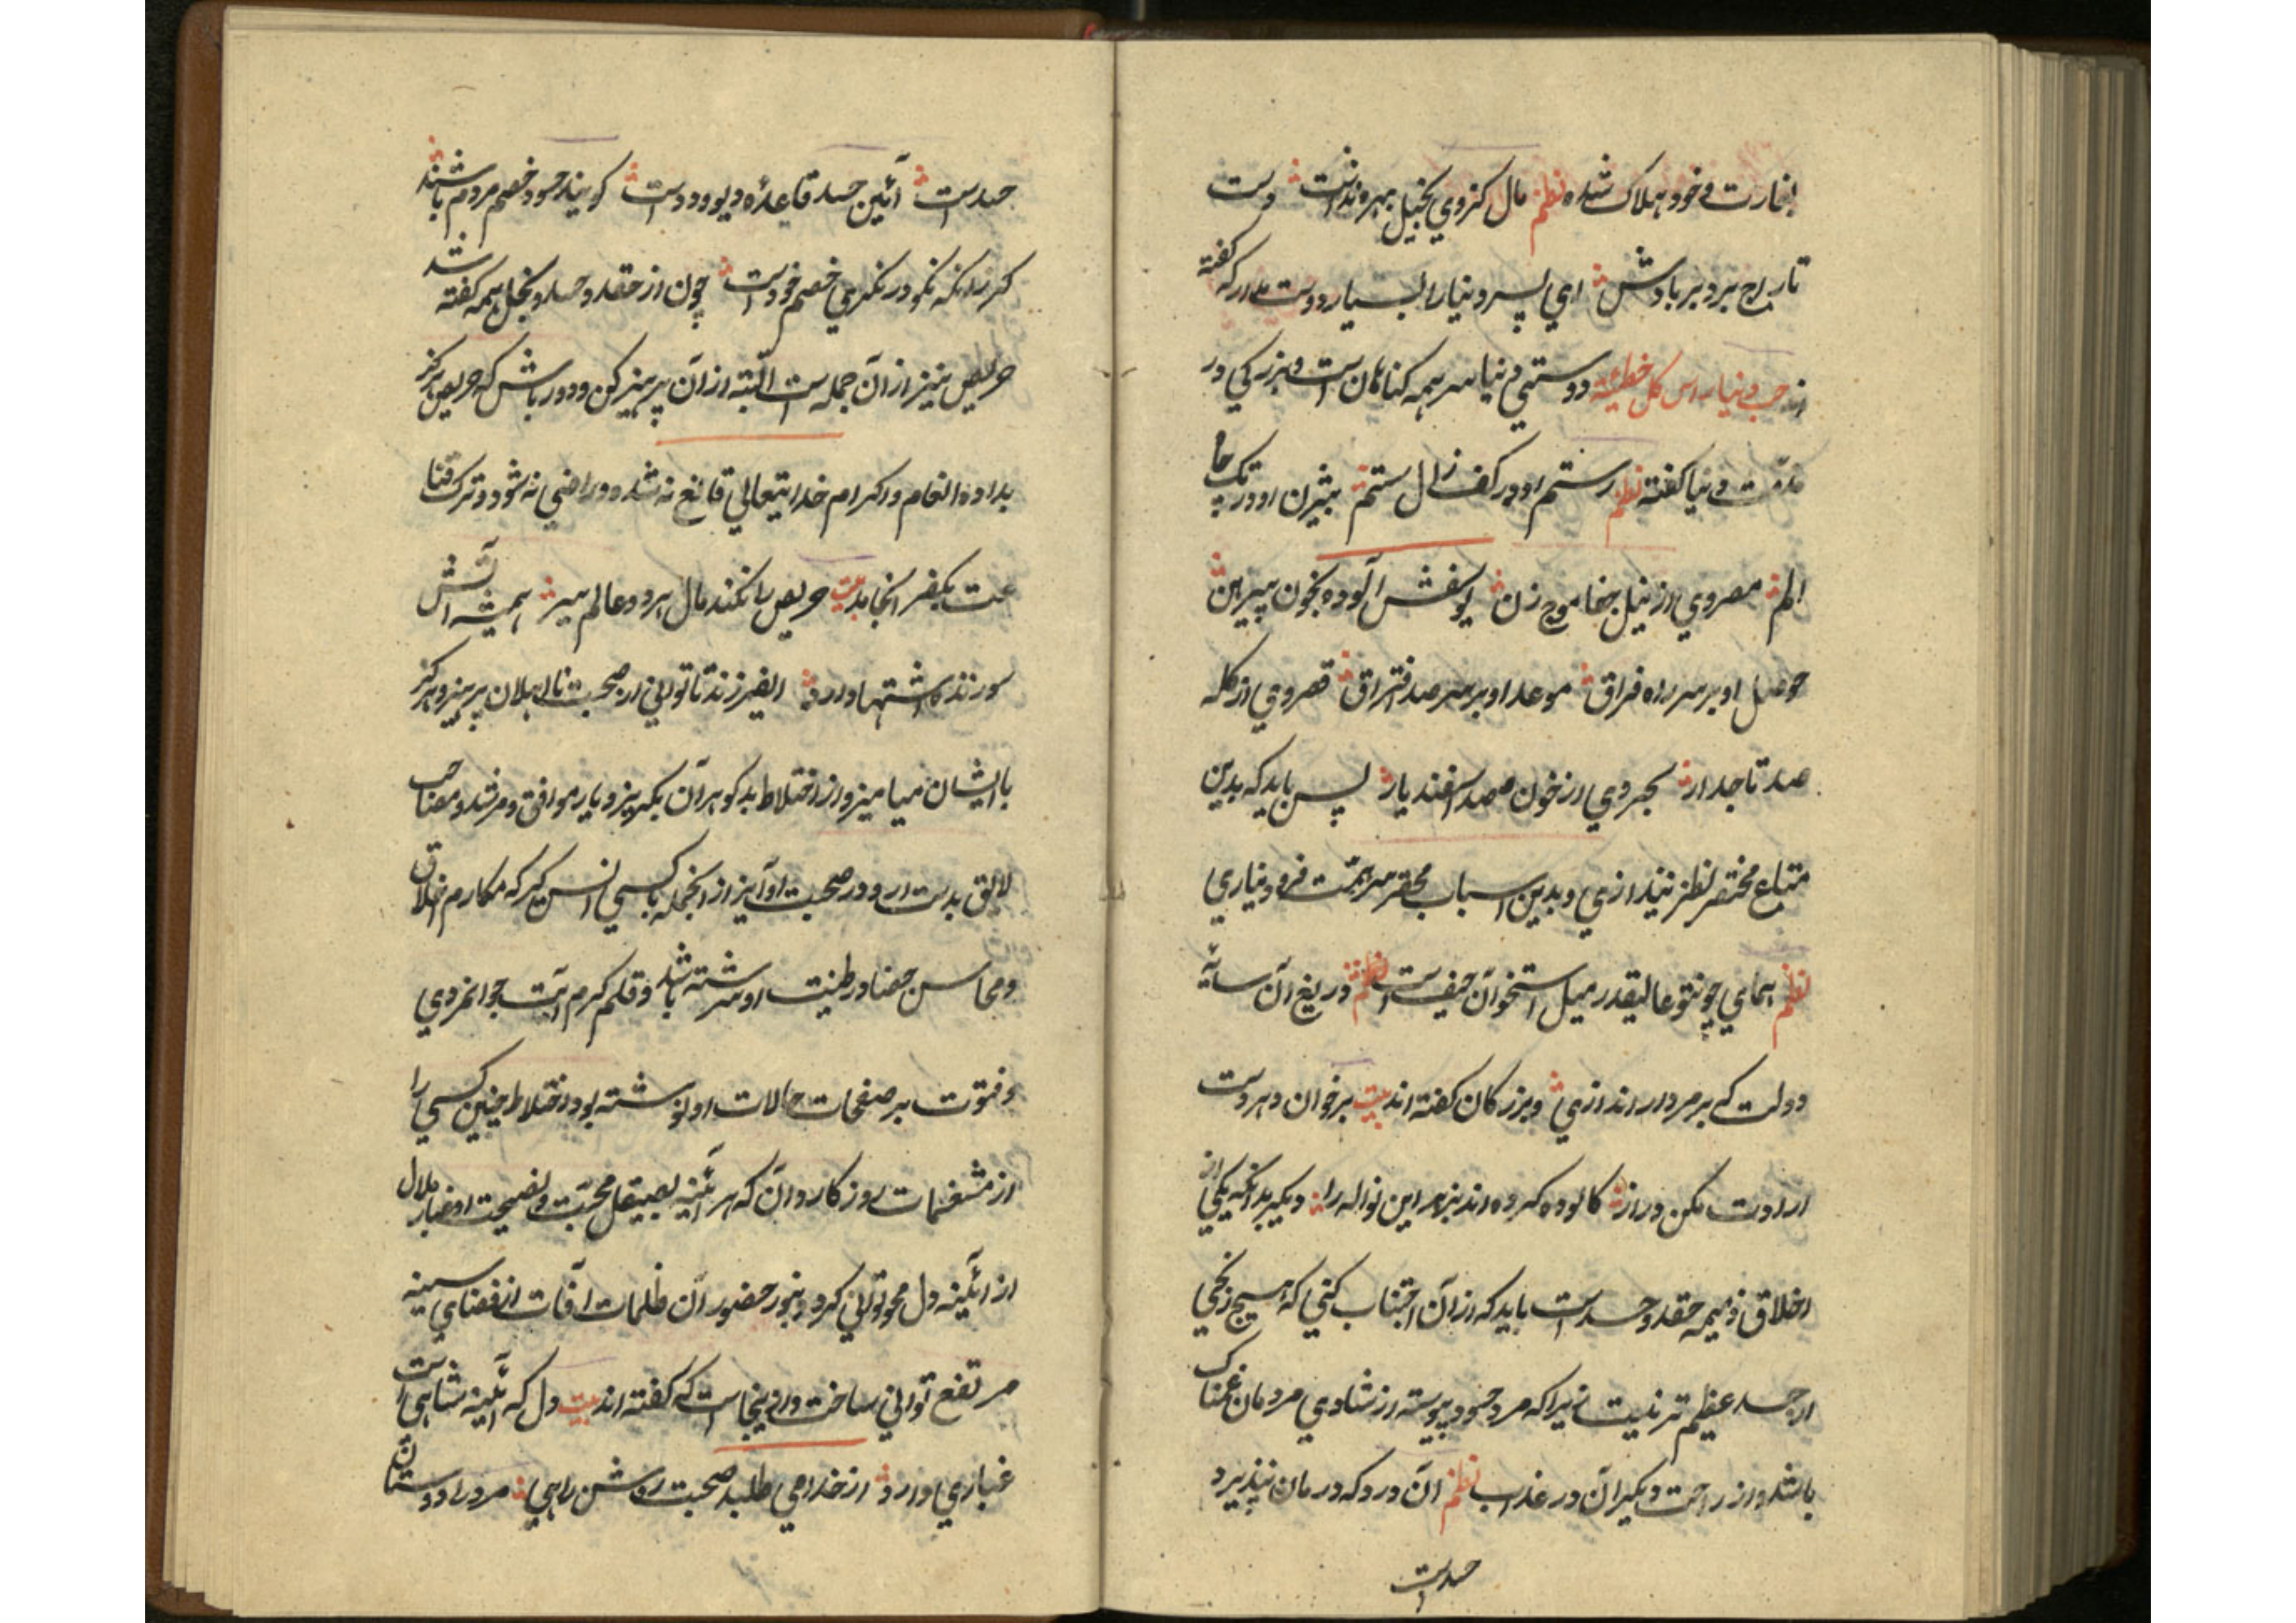 بغارت و خود هلاک شده نظم مال کزوی بخیل بهره نداشت دست
تاراج برد بر بادش ای پسر دنیا را بسیار دوست مدار که گفته
اند حب دنیا راس کل خطیئة دوستی دنیا سر همه کناهان است و بزرکی در
مذمّت دنیا کفته نظم رستم او در کف زال ستم بیژن او در تک چاه
الم مصر وی از نیل جفا موج زن یوسفش آلوده بخون پیرهن
او بر سر راه فراق موعد او بر سر صد افتراق قصر وی از کله
صد تاجدار بحر وی از خون صد اسفندیار پس باید که بدین
متاع مختصر نظر نیندازی و بدین اسباب محقر سر همّت فرود نیاری
نظم همای چو تو عالیقدر میل استخوان حیف است نظم دریغ آن سایهٔ
دولت که بر مردار اندازی و بزرکان کفته اند بیت برخوان دهر دست
ارادت مکن دراز کالوده کرده اند بزهر این نواله را دیکر بدانکه یکی از
اخلاق ذمیمه حقد و حسد است باید که از آن اجتناب کنی که هیچ رنجی
از حسد عظیم تر نیست زیرا که مرد حسود پیوسته از شادی مردمان غمناک
باشد و از راحت دیکران در عذاب نظم آن درد که درمان نپذیرد
حسد است
حسد است آئین حسد قاعدهٔ دیو و دد است کویند حسود خصم مردم باشند
کر زانکه نکو در نکری خصم خود است چون از حقد و حسد و بخل همه کفته شد
حریص نیز از آن جمله است البته از آن پرهیز کن و دور باش که حریص هرکز
بداده انعام و اکرام خدایتعالی قانع نه شده و راضی نه شود و ترک قنا
عت بکفر انجامد بیت حریص را نکند مال هر دو عالم سیر همیشه آتش
سوزنده اشتها دارد ایفرزند تا توانی از صحبت نااهلان پرهیز و هرکز
با ایشان میامیز و از اختلاط بدکوهرآن بکریز و یار موافق و مرشد و مصاحب
لایق بدست آر و در صحبت او آویز از آنجمله با کسی انس کیر که مکارم اخلاق
و محاسن در طینت او سرشته باشد و قلم کرم آیت جوانمردی
و فتوت بر صفحات حالات او نوشته بود اختلاط چنین کسی را
از مغتنمات روزکار دان که هر آئینه بصیقل محبّت و نصیحت او غبار ملال
از آئینه دل محو توانی کرد و بنور حضور آن ظلمات آفات از فضای سینه
مرتفع توانی ساخت و از اینجاست که کفته اند بیت دل که آئینه شاهی است
غباری دارد از خدا می طلبد صحبت روشن راهی مرد را دوستان